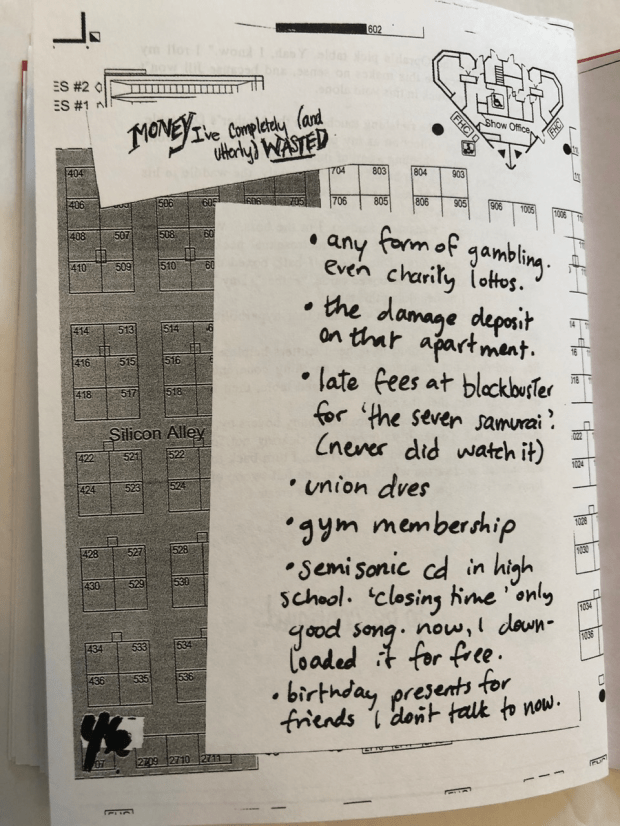 602
ES #2
ES #1
MONEY I've completely (and
utterly) WASTED
Show Office
FHC
FHC
404
704 803
804 903
406
506 605
606 705
706 805
806 905
906 1005
1006
408 507
508
410 509
510
414 513
514
416 515
516
418 517
518
Silicon Alley
422 521
522
424 523
524
1024
428 527
528
1028
430 529
530
1030
434 533
534
1034
436 535
536
1036
2709 2710 2711
• any form of gambling.
even charity lottos.
• the damage deposit
on that apartment.
• late fees at blockbuster
for 'the seven samurai'.
(never did watch it)
• union dues
• gym membership
• semisonic cd in high
school. 'closing time' only
good song. now, I down-
loaded it for free.
• birthday presents for
friends I don't talk to now.
46